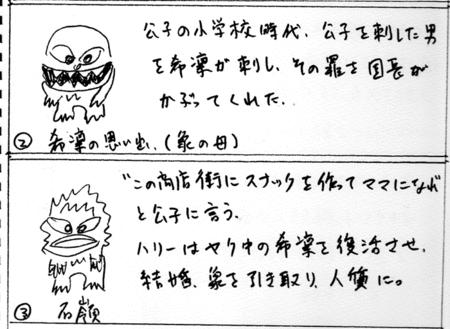 公子の小学校時代、公子を刺した男
を希凛が刺し、その罪を団長が
かぶってくれた。
② 希凛の思い出。(象の母)
"この商店街にスナックを作ってママになれ"
と公子に言う。
ハリーはヤク中の希凛を復活させ、
結婚。象を引き取り、人質に。
③ 石嶺